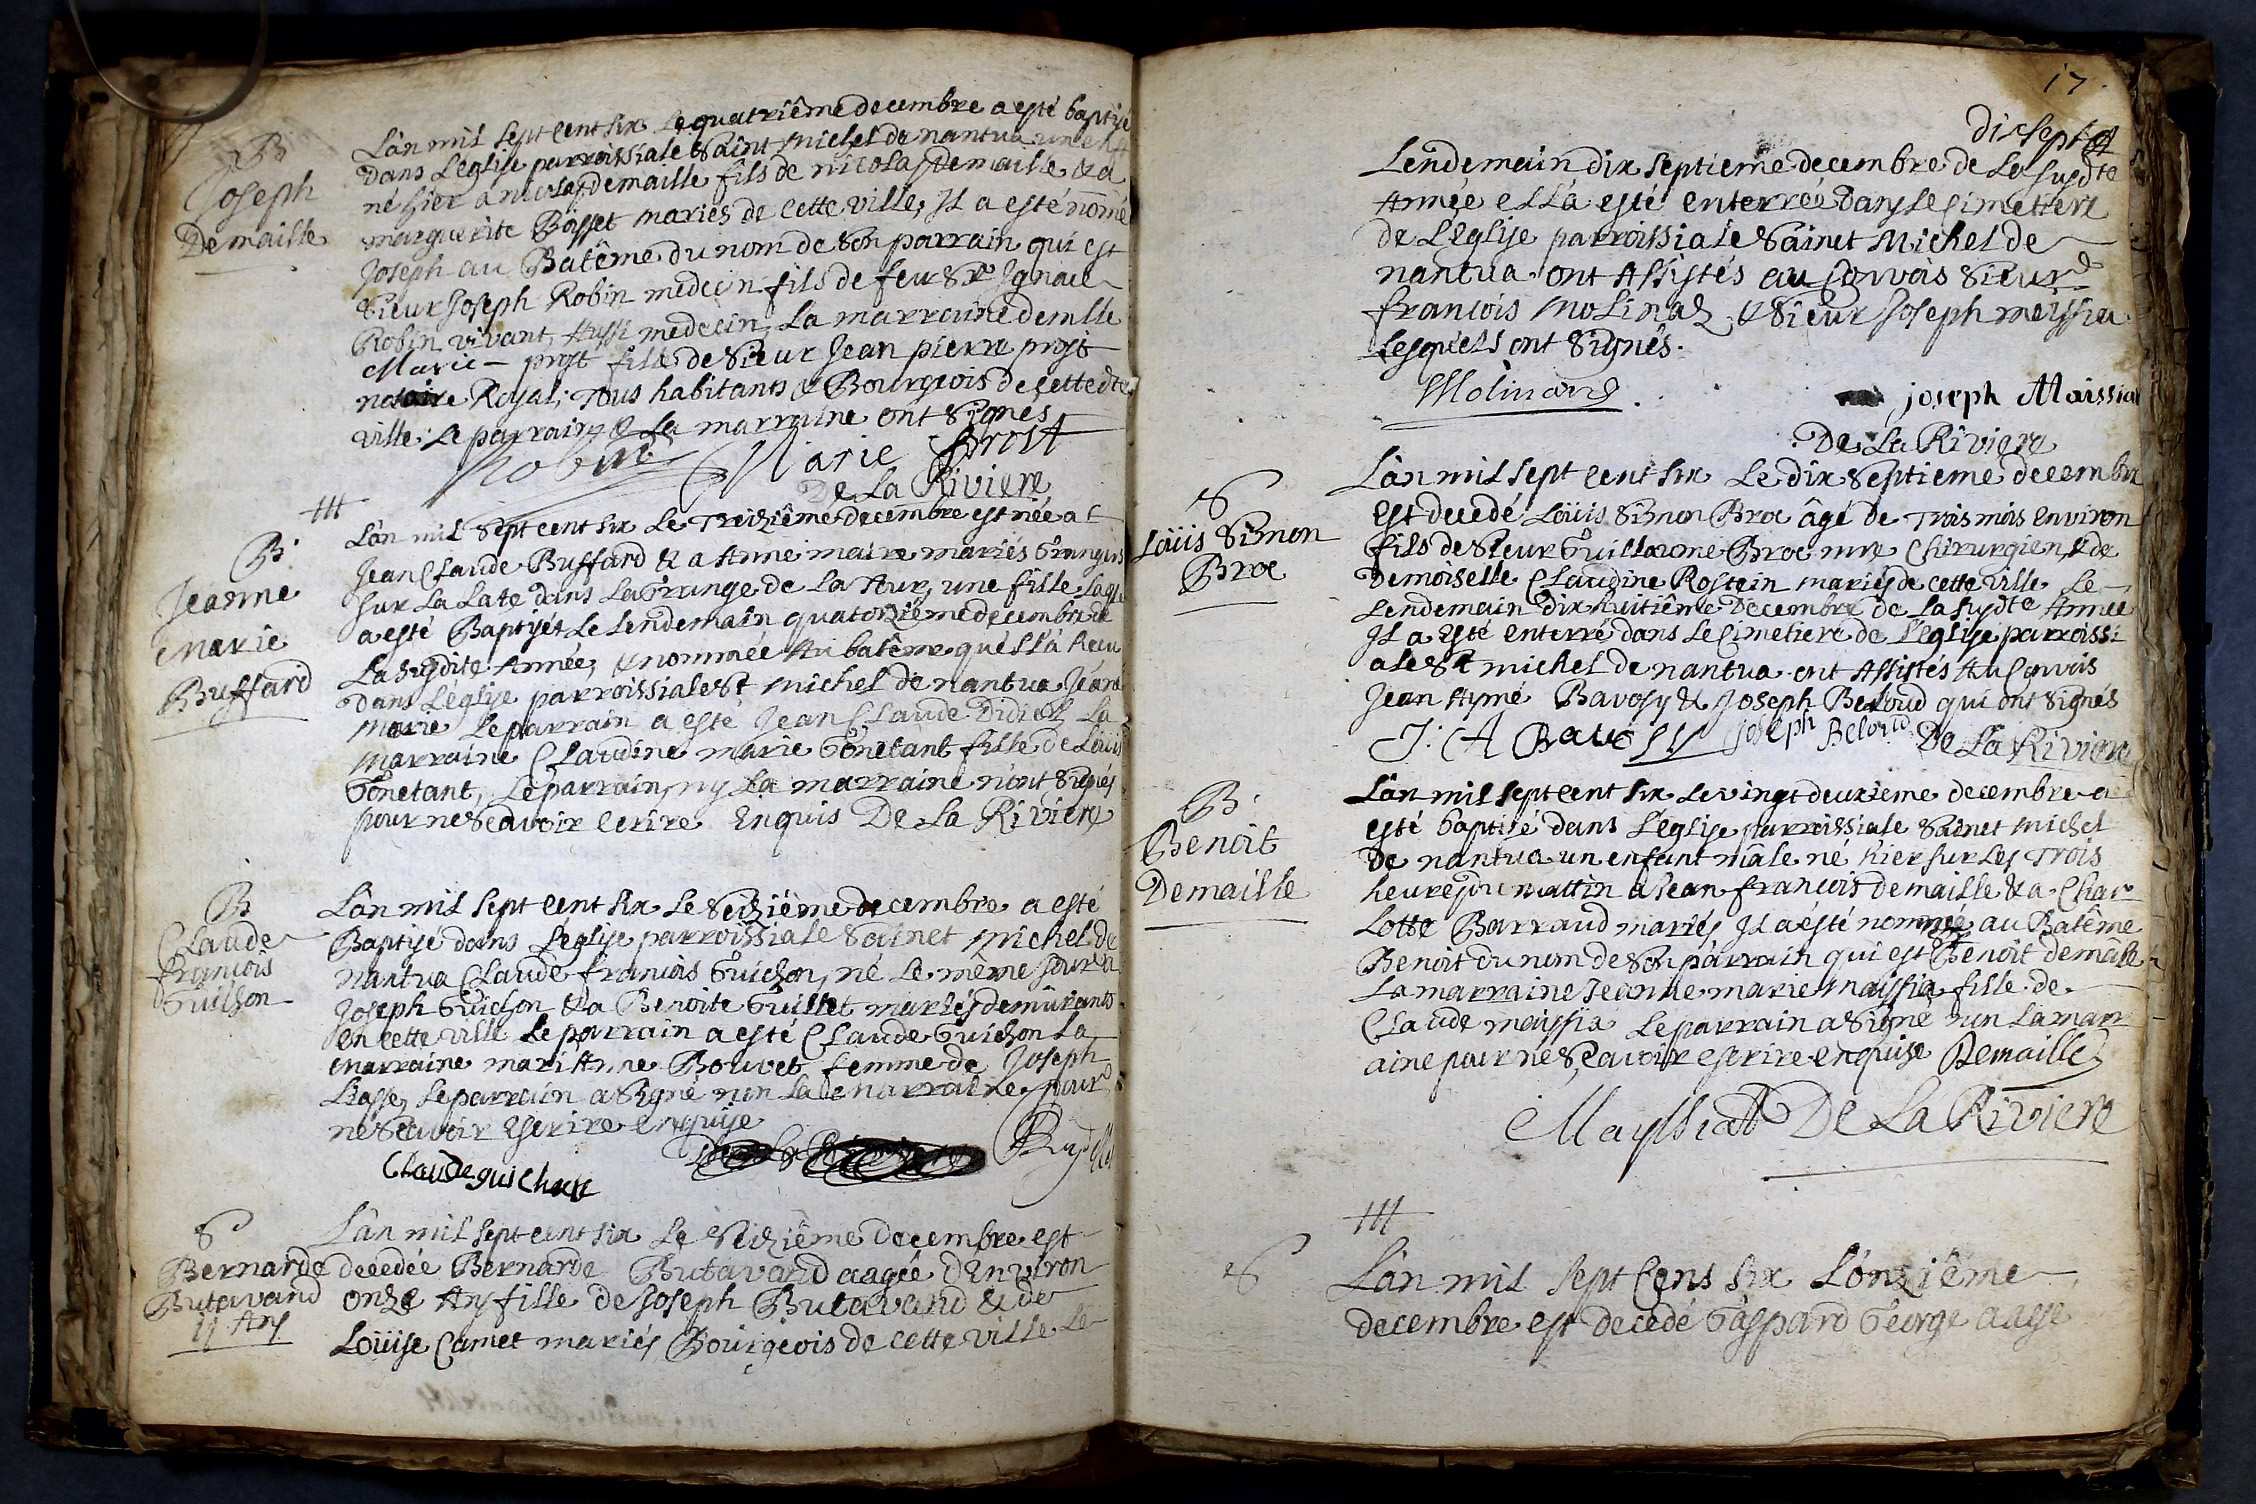 B
Joseph
Demaille
L'an mil sept cent six le quatriême decembre a esté baptisé
dans L'eglise parroissiale Saint Michel de nantua
né hier a nicolas demaille fils de nicolas demaille & a
marguerite Bosset mariés de cette ville, Il a esté nõmé
Joseph au Batême du nom de son parrain qui est
Sieur Joseph Robin medecin fils de feu Sr Ignace
Robin vivant Aussi medecin, La marraine demlle
Marie - prost fille de Sieur Jean pierre prost
notaire Royal; Tous habitants & Bourgeois de cette dte
ville; Le parrain & La marraine ont signés
Robin Marie Prost
De La Riviere
B.
Jeanne
marie
Buffard
L'an mil sept cent six Le Treiziême decembre est née a
Jean Claude Buffard & a Anne maire mariés Grangers
sur La Late dans La Grange de La Tour, une fille, Laq
a esté Baptisée Le Lendemain quatorziême decembre de
La susdite Année, & nommée Au batême qu'ell'à Receu
dans L'eglise parroissiale St Michel de nantua Jeane
marie Le parrain a esté Jean Claude Didier La
marraine Claudine marie Gonetant fille de Loüis
Gonetant, Le parrain, ny La marraine n'ont signés
pour ne sçavoir ecrire Enquis De La Riviere
B
Claude
françois
Guichon
L'an mil sept cent six Le seiziéme decembre a esté
Baptisé dans L'eglise parroissiale Sainct Michel de
nantua Claude françois Guichon, né Le même jour a
Joseph Guichon & a Benoite Guillet mariés demûrants
en cette ville Le parrain a esté Claude Guichon La
marraine mari Anne Bouvet femme de Joseph
Liasse, Le parrain a signé non La de marraine pour
ne sçavoir escrire enquise
Claude guichon
S
Bernarde
Butavand
11 Ans
L'an mil sept cent six Le seiziême decembre est
decedée Bernarde Butavand aagée d'Environ
onze Ans fille de Joseph Butavand & de
Loüise Camet mariés Bourgeois de cette ville Le
17
dixsept
Lendemain dix septieme decembre de La susdte
Année ell'à esté enterrée dans Le Cimetiere
de L'eglise parroissiale Sainct Michel de
nantua. ont Assistés au Convois Sieurs
françois Molinard, & Sieur Joseph meyssia
Lesquels ont signés.
Molinard
joseph Maissiat
De La Riviere
S
Loüis Simon
Broc
L'an mil sept cent six Le dix septieme decembre
est decedé Loüis Simon Broc âgé de Trois mois environ
fils de Sieur Guillaume Broc mre Chirurgien, & de
Demoiselle Claudine Rostein mariés de cette ville Le
Lendemain dix huitiême Decembre de La susdte Année
Il a esté enterré dans Le Cimetiere de L'eglise parroissi
ale St michel de nantua ont Assistés Au Convois
Jean Aymé Bavosy & Joseph Beloud qui ont signés
J: A Bavossy joseph Beloud De La Riviere
B.
Benoit
Demaille
L'an mil sept cent six Le vingt deuxieme decembre a
esté baptisé dans L'eglise parroissiale Sainct Michel
de nantua un enfant mâle né hier sur Les Trois
heures du mattin a Jean françois demaille & a Char
Lotte Barraud mariés Il a ésté nommé au Batême
Benoit du nom de son parrain qui est Benoit demaille
La marraine Jeanne marie maissia fille de
Claude maissia Le parrain a signé non La marr
aine pour ne sçavoir escrire enquise Demaille
Mayssiat De La Riviere
S
L'an mil sept Cens six L'onziême
decembre est decedé Gaspard George aagé